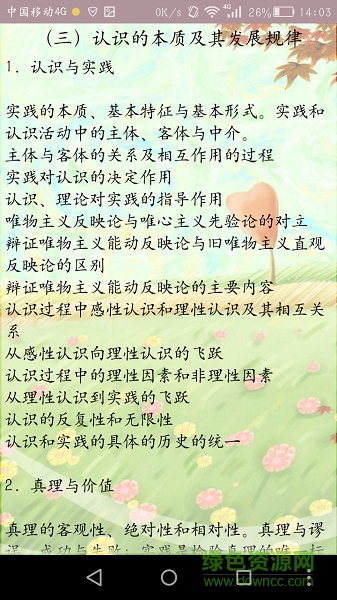 中国移动4G 0K/s 4G 26% 14:03
(三)认识的本质及其发展规律
1. 认识与实践
实践的本质、基本特征与基本形式。实践和
认识活动中的主体、客体与中介。
主体与客体的关系及相互作用的过程
实践对认识的决定作用
认识、理论对实践的指导作用
唯物主义反映论与唯心主义先验论的对立
辩证唯物主义能动反映论与旧唯物主义直观
反映论的区别
辩证唯物主义能动反映论的主要内容
认识过程中感性认识和理性认识及其相互关
系
从感性认识向理性认识的飞跃
认识过程中的理性因素和非理性因素
从理性认识到实践的飞跃
认识的反复性和无限性
认识和实践的具体的历史的统一
2. 真理与价值
真理的客观性、绝对性和相对性。真理与谬
误、成功与失败；实践是检验真理的唯一标
绿色资源网
www.downcc.com